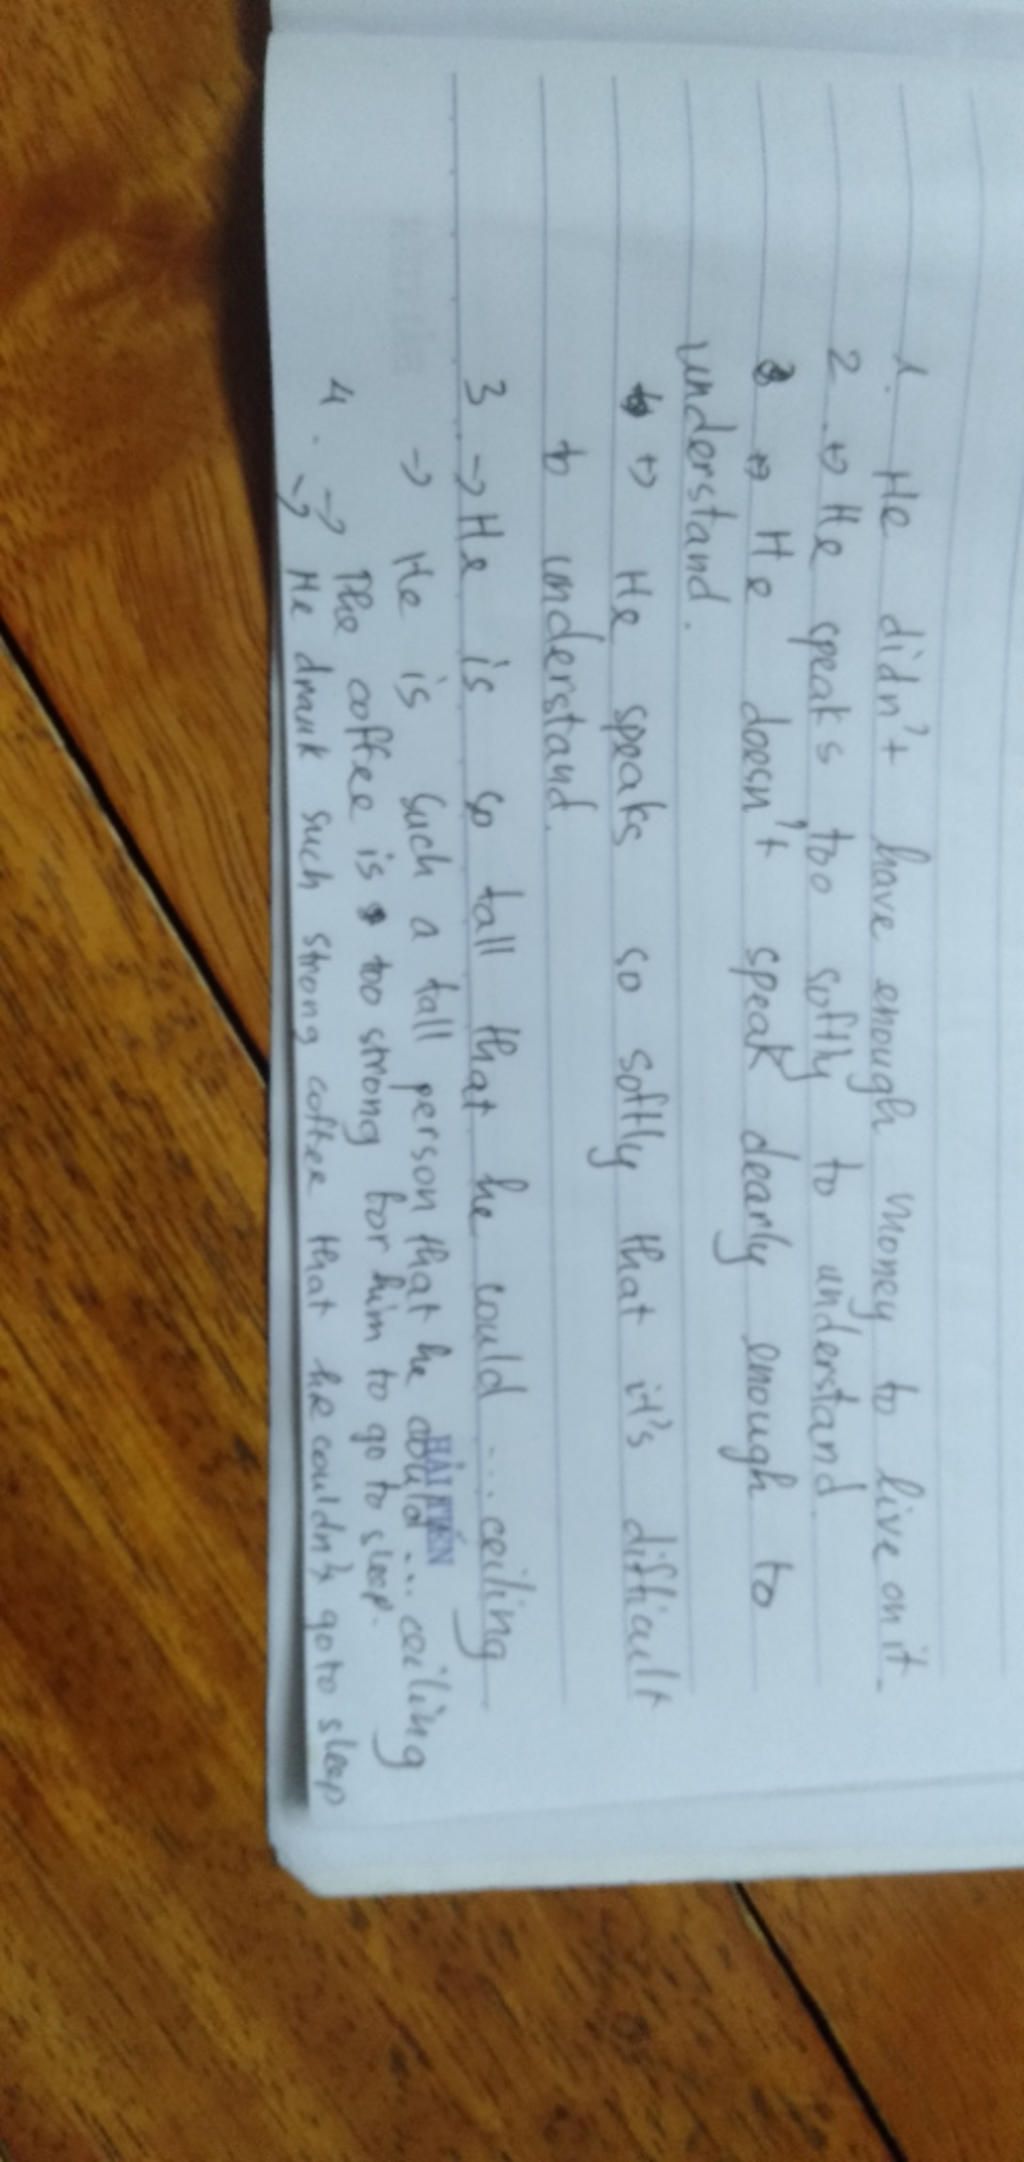 1. He didn't have enough money to live on it.
2. ↔ He speaks too softly to understand
↔ He doesn't speak clearly enough to
understand.
↔ He speaks so softly that it's difficult
to understand.
3 → He is so tall that he could ... ceiling
→ He is such a tall person that he could ... ceiling
HẢI TIẾN
4. → The coffee is too strong for him to go to sleep.
→ He drank such strong coffee that he couldn't go to sleep